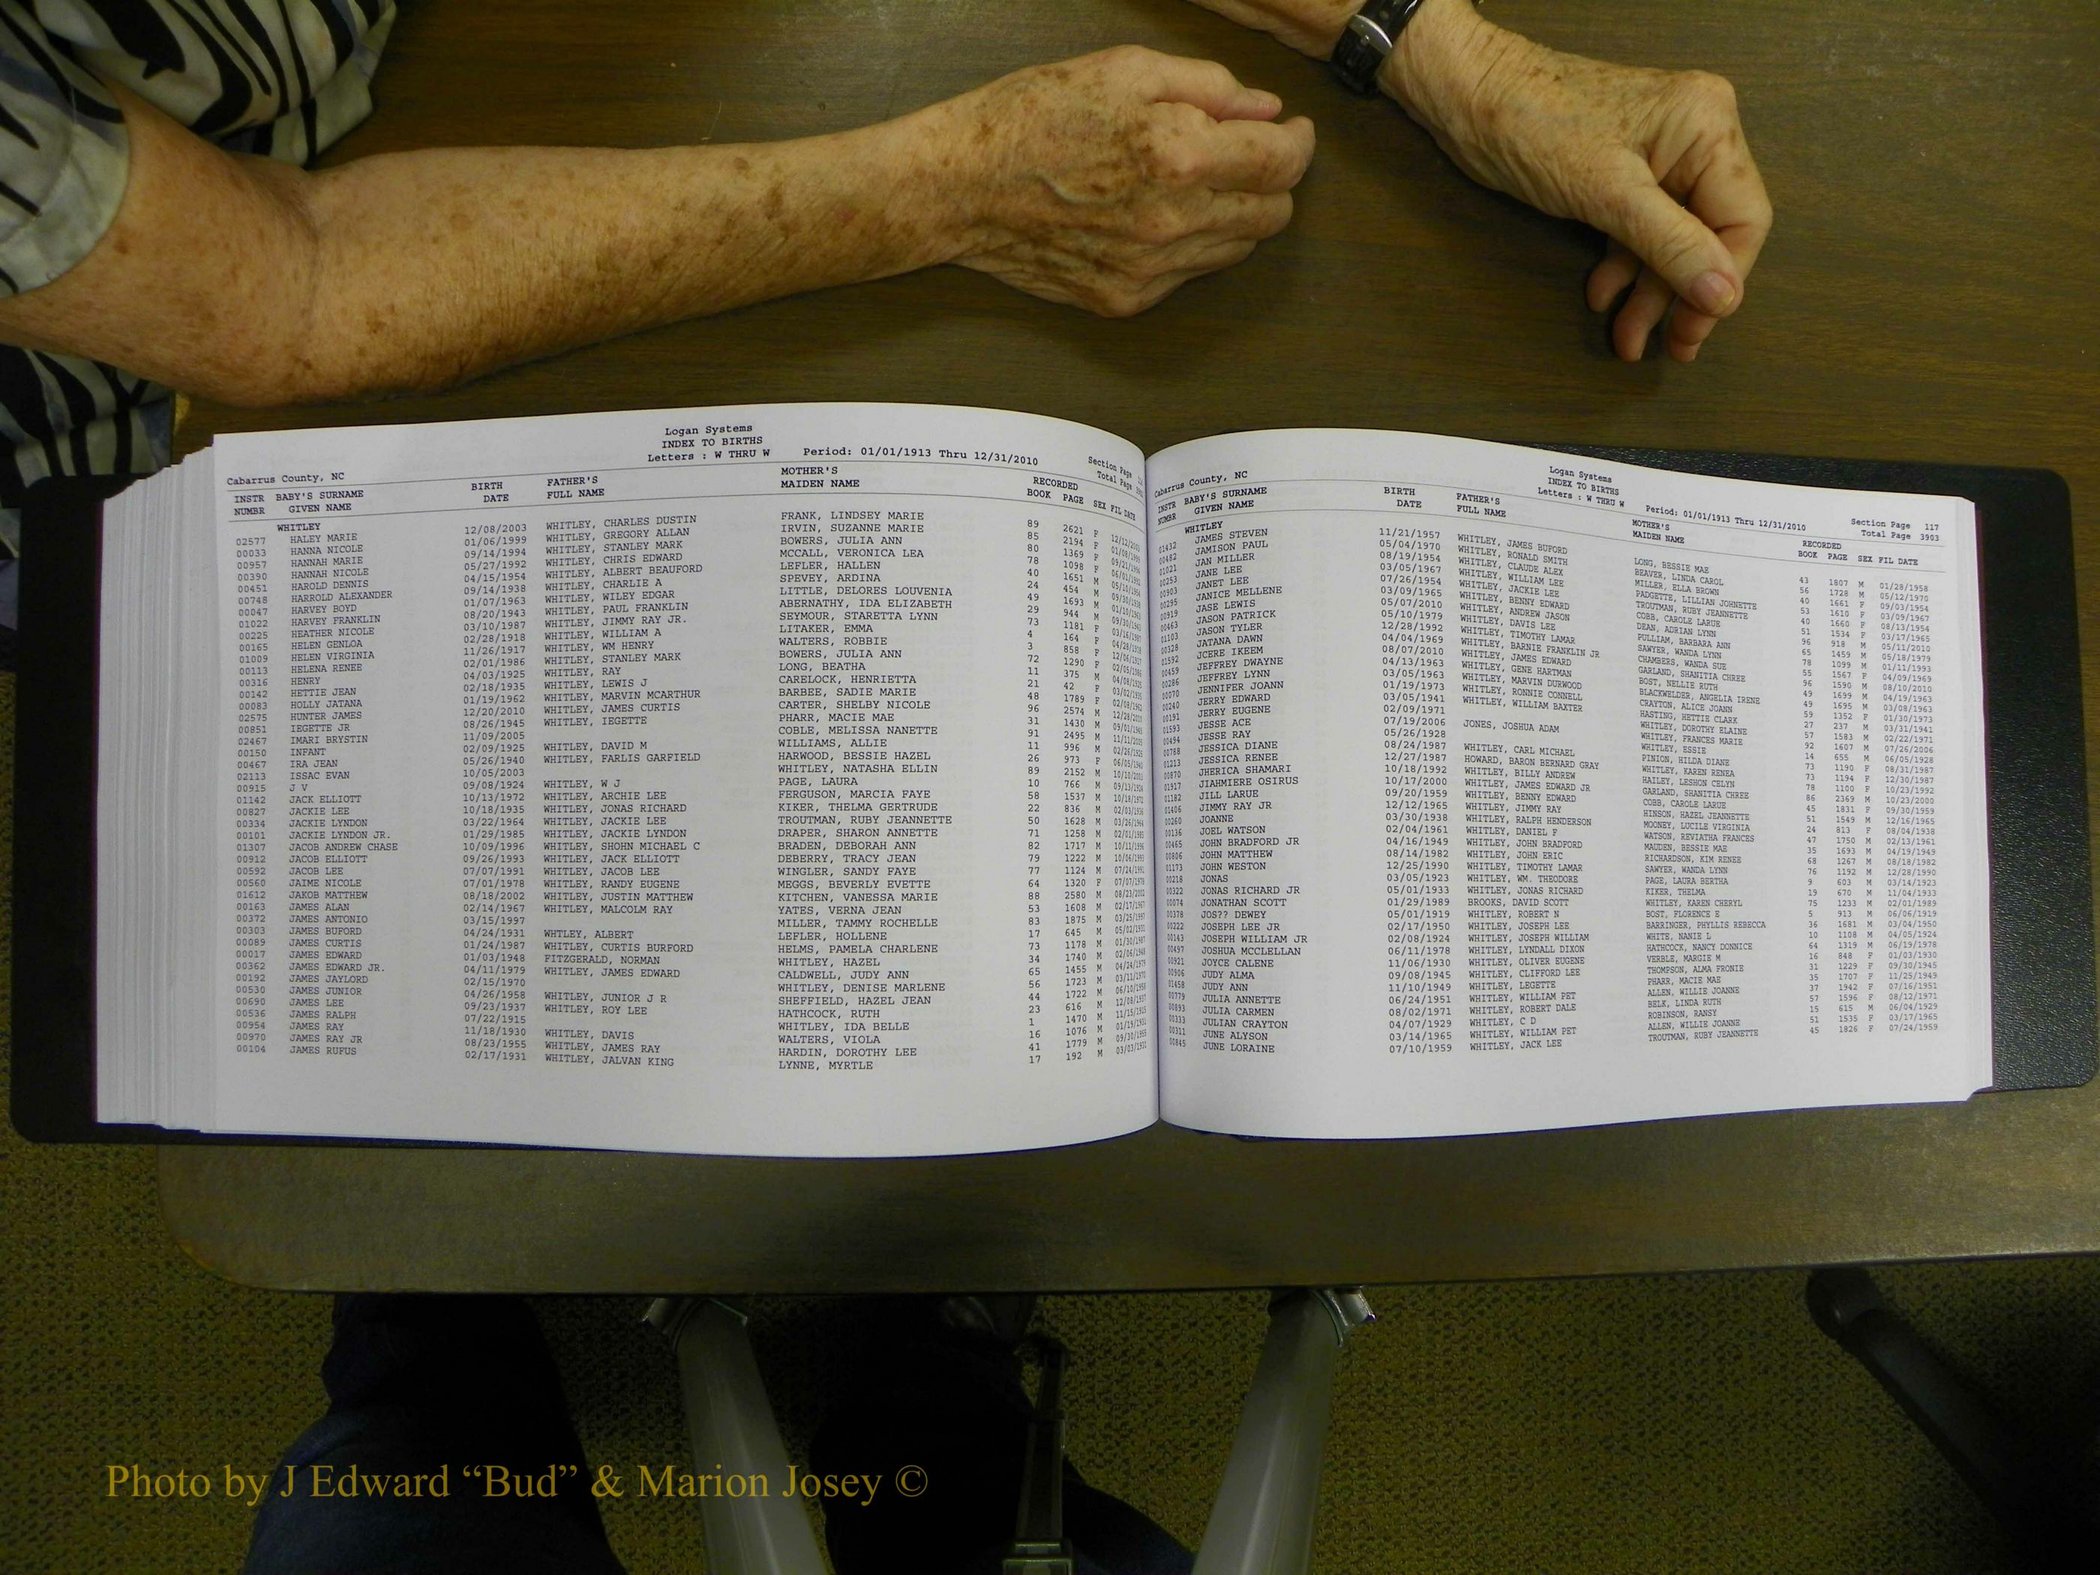 Logan Systems
INDEX TO BIRTHS
Letters : W THRU W Period: 01/01/1913 Thru 12/31/2010
Cabarrus County, NC Section Page
Total Page
INSTR BABY'S SURNAME BIRTH FATHER'S MOTHER'S RECORDED
NUMBR GIVEN NAME DATE FULL NAME MAIDEN NAME BOOK PAGE SEX FIL DATE
WHITLEY
02577 HALEY MARIE 12/08/2003 WHITLEY, CHARLES DUSTIN FRANK, LINDSEY MARIE 89 2621 F 12/12/2003
00033 HANNA NICOLE 01/06/1999 WHITLEY, GREGORY ALLAN IRVIN, SUZANNE MARIE 85 2194 F 01/08/1999
00957 HANNAH MARIE 09/14/1994 WHITLEY, STANLEY MARK BOWERS, JULIA ANN 80 1369 F 09/21/1994
00390 HANNAH NICOLE 05/27/1992 WHITLEY, CHRIS EDWARD MCCALL, VERONICA LEA 78 1098 F 06/01/1992
00451 HAROLD DENNIS 04/15/1954 WHITLEY, ALBERT BEAUFORD LEFLER, HALLEN 40 1651 M 05/10/1954
00748 HARROLD ALEXANDER 09/14/1938 WHITLEY, CHARLIE A SPEVEY, ARDINA 24 454 M 09/30/1938
00047 HARVEY BOYD 01/07/1963 WHITLEY, WILEY EDGAR LITTLE, DELORES LOUVENIA 49 1693 M 01/10/1963
01022 HARVEY FRANKLIN 08/20/1943 WHITLEY, PAUL FRANKLIN ABERNATHY, IDA ELIZABETH 29 944 M 09/30/1943
00225 HEATHER NICOLE 03/10/1987 WHITLEY, JIMMY RAY JR. SEYMOUR, STARETTA LYNN 73 1181 F 03/16/1987
00165 HELEN GENLOA 02/28/1918 WHITLEY, WILLIAM A LITAKER, EMMA 4 164 F 04/28/1918
01009 HELEN VIRGINIA 11/26/1917 WHITLEY, WM HENRY WALTERS, ROBBIE 3 858 F 12/06/1917
00113 HELENA RENEE 02/01/1986 WHITLEY, STANLEY MARK BOWERS, JULIA ANN 72 1290 F 02/05/1986
00316 HENRY 04/03/1925 WHITLEY, RAY LONG, BEATHA 11 375 M 04/08/1925
00142 HETTIE JEAN 02/18/1935 WHITLEY, LEWIS J CARELOCK, HENRIETTA 21 42 F 03/02/1935
00083 HOLLY JATANA 01/19/1962 WHITLEY, MARVIN MCARTHUR BARBEE, SADIE MARIE 48 1789 F 02/08/1962
02575 HUNTER JAMES 12/20/2010 WHITLEY, JAMES CURTIS CARTER, SHELBY NICOLE 96 2574 M 12/28/2010
00851 IEGETTE JR 08/26/1945 WHITLEY, IEGETTE PHARR, MACIE MAE 31 1430 M 09/01/1945
02467 IMARI BRYSTIN 11/09/2005 COBLE, MELISSA NANETTE 91 2495 M 11/11/2005
00150 INFANT 02/09/1925 WHITLEY, DAVID M WILLIAMS, ALLIE 11 996 M 02/26/1925
00467 IRA JEAN 05/26/1940 WHITLEY, FARLIS GARFIELD HARWOOD, BESSIE HAZEL 26 973 F 06/05/1940
02113 ISSAC EVAN 10/05/2003 WHITLEY, NATASHA ELLIN 89 2152 M 10/10/2003
00915 J V 09/08/1924 WHITLEY, W J PAGE, LAURA 10 766 M 09/13/1924
01142 JACK ELLIOTT 10/13/1972 WHITLEY, ARCHIE LEE FERGUSON, MARCIA FAYE 58 1537 M 10/18/1972
00827 JACKIE LEE 10/18/1935 WHITLEY, JONAS RICHARD KIKER, THELMA GERTRUDE 22 836 M 02/03/1936
00334 JACKIE LYNDON 03/22/1964 WHITLEY, JACKIE LEE TROUTMAN, RUBY JEANNETTE 50 1628 M 03/26/1964
00101 JACKIE LYNDON JR. 01/29/1985 WHITLEY, JACKIE LYNDON DRAPER, SHARON ANNETTE 71 1258 M 02/01/1985
01307 JACOB ANDREW CHASE 10/09/1996 WHITLEY, SHOHN MICHAEL C BRADEN, DEBORAH ANN 82 1717 M 10/11/1996
00912 JACOB ELLIOTT 09/26/1993 WHITLEY, JACK ELLIOTT DEBERRY, TRACY JEAN 79 1222 M 10/06/1993
00592 JACOB LEE 07/07/1991 WHITLEY, JACOB LEE WINGLER, SANDY FAYE 77 1124 M 07/24/1991
00560 JAIME NICOLE 07/01/1978 WHITLEY, RANDY EUGENE MEGGS, BEVERLY EVETTE 64 1320 F 07/07/1978
01612 JAKOB MATTHEW 08/18/2002 WHITLEY, JUSTIN MATTHEW KITCHEN, VANESSA MARIE 88 2580 M 08/23/2002
00163 JAMES ALAN 02/14/1967 WHITLEY, MALCOLM RAY YATES, VERNA JEAN 53 1608 M 02/17/1967
00372 JAMES ANTONIO 03/15/1997 MILLER, TAMMY ROCHELLE 83 1875 M 03/25/1997
00303 JAMES BUFORD 04/24/1931 WHTLEY, ALBERT LEFLER, HOLLENE 17 645 M 05/02/1931
00089 JAMES CURTIS 01/24/1987 WHITLEY, CURTIS BURFORD HELMS, PAMELA CHARLENE 73 1178 M 01/30/1987
00017 JAMES EDWARD 01/03/1948 FITZGERALD, NORMAN WHITLEY, HAZEL 34 1740 M 02/06/1948
00362 JAMES EDWARD JR. 04/11/1979 WHITLEY, JAMES EDWARD CALDWELL, JUDY ANN 65 1455 M 04/24/1979
00192 JAMES JAYLORD 02/15/1970 WHITLEY, DENISE MARLENE 56 1723 M 03/11/1970
00530 JAMES JUNIOR 04/26/1958 WHITLEY, JUNIOR J R SHEFFIELD, HAZEL JEAN 44 1722 M 06/10/1958
00690 JAMES LEE 09/23/1937 WHITLEY, ROY LEE HATHCOCK, RUTH 23 616 M 12/08/1937
00536 JAMES RALPH 07/22/1915 WHITLEY, IDA BELLE 1 1470 M 11/15/1915
00954 JAMES RAY 11/18/1930 WHITLEY, DAVIS WALTERS, VIOLA 16 1076 M 01/19/1931
00970 JAMES RAY JR 08/23/1955 WHITLEY, JAMES RAY HARDIN, DOROTHY LEE 41 1779 M 09/30/1955
00104 JAMES RUFUS 02/17/1931 WHITLEY, JALVAN KING LYNNE, MYRTLE 17 192 M 03/03/1931
Logan Systems
INDEX TO BIRTHS
Letters : W THRU W Period: 01/01/1913 Thru 12/31/2010
Cabarrus County, NC Section Page 117
Total Page 3903
INSTR BABY'S SURNAME BIRTH FATHER'S MOTHER'S RECORDED
NUMBR GIVEN NAME DATE FULL NAME MAIDEN NAME BOOK PAGE SEX FIL DATE
WHITLEY
01432 JAMES STEVEN 11/21/1957 WHITLEY, JAMES BUFORD LONG, BESSIE MAE 43 1807 M 01/28/1958
00482 JAMISON PAUL 05/04/1970 WHITLEY, RONALD SMITH BEAVER, LINDA CAROL 56 1728 M 05/12/1970
01021 JAN MILLER 08/19/1954 WHITLEY, CLAUDE ALEX MILLER, ELLA BROWN 40 1661 F 09/03/1954
00253 JANE LEE 03/05/1967 WHITLEY, WILLIAM LEE PADGETTE, LILLIAN JOHNETTE 53 1610 F 03/09/1967
00903 JANET LEE 07/26/1954 WHITLEY, JACKIE LEE TROUTMAN, RUBY JEANNETTE 40 1660 F 08/13/1954
00295 JANICE MELLENE 03/09/1965 WHITLEY, BENNY EDWARD COBB, CAROLE LARUE 51 1534 F 03/17/1965
00919 JASE LEWIS 05/07/2010 WHITLEY, ANDREW JASON DEAN, ADRIAN LYNN 96 918 M 05/11/2010
00463 JASON PATRICK 05/10/1979 WHITLEY, DAVIS LEE PULLIAM, BARBARA ANN 65 1459 M 05/18/1979
01103 JASON TYLER 12/28/1992 WHITLEY, TIMOTHY LAMAR SAWYER, WANDA LYNN 78 1099 M 01/11/1993
00328 JATANA DAWN 04/04/1969 WHITLEY, BARNIE FRANKLIN JR CHAMBERS, WANDA SUE 55 1567 F 04/09/1969
01592 JCERE IKEEM 08/07/2010 WHITLEY, JAMES EDWARD GARLAND, SHANITIA CHREE 96 1590 M 08/10/2010
00459 JEFFREY DWAYNE 04/13/1963 WHITLEY, GENE HARTMAN BOST, NELLIE RUTH 49 1699 M 04/19/1963
00286 JEFFREY LYNN 03/05/1963 WHITLEY, MARVIN DURWOOD BLACKWELDER, ANGELIA IRENE 49 1695 M 03/08/1963
00070 JENNIFER JOANN 01/19/1973 WHITLEY, RONNIE CONNELL CRAYTON, ALICE JOANN 59 1352 F 01/30/1973
00240 JERRY EDWARD 03/05/1941 WHITLEY, WILLIAM BAXTER HASTING, HETTIE CLARK 27 237 M 03/31/1941
00191 JERRY EUGENE 02/09/1971 WHITLEY, DOROTHY ELAINE 57 1583 M 02/22/1971
01593 JESSE ACE 07/19/2006 JONES, JOSHUA ADAM WHITLEY, FRANCES MARIE 92 1607 M 07/26/2006
00494 JESSE RAY 05/26/1928 WHITLEY, ESSIE 14 655 M 06/05/1928
00788 JESSICA DIANE 08/24/1987 WHITLEY, CARL MICHAEL PINION, HILDA DIANE 73 1190 F 08/31/1987
01213 JESSICA RENEE 12/27/1987 HOWARD, BARON BERNARD GRAY WHITLEY, KAREN RENEA 73 1194 F 12/30/1987
00870 JHERICA SHAMARI 10/18/1992 WHITLEY, BILLY ANDREW HAILEY, LESHON CELYN 78 1100 F 10/23/1992
01917 JIAHMIERE OSIRUS 10/17/2000 WHITLEY, JAMES EDWARD JR GARLAND, SHANITIA CHREE 86 2369 M 10/23/2000
01182 JILL LARUE 09/20/1959 WHITLEY, BENNY EDWARD COBB, CAROLE LARUE 45 1831 F 09/30/1959
01406 JIMMY RAY JR 12/12/1965 WHITLEY, JIMMY RAY HINSON, HAZEL JEANNETTE 51 1549 M 12/16/1965
00260 JOANNE 03/30/1938 WHITLEY, RALPH HENDERSON MOONEY, LUCILE VIRGINIA 24 813 F 08/04/1938
00136 JOEL WATSON 02/04/1961 WHITLEY, DANIEL F WATSON, REVIATHA FRANCES 47 1750 M 02/13/1961
00465 JOHN BRADFORD JR 04/16/1949 WHITLEY, JOHN BRADFORD MAUDEN, BESSIE MAE 35 1693 M 04/19/1949
00806 JOHN MATTHEW 08/14/1982 WHITLEY, JOHN ERIC RICHARDSON, KIM RENEE 68 1267 M 08/18/1982
01173 JOHN WESTON 12/25/1990 WHITLEY, TIMOTHY LAMAR SAWYER, WANDA LYNN 76 1192 M 12/28/1990
00218 JONAS 03/05/1923 WHITLEY, WM. THEODORE PAGE, LAURA BERTHA 9 603 M 03/14/1923
00322 JONAS RICHARD JR 05/01/1933 WHITLEY, JONAS RICHARD KIKER, THELMA 19 670 M 11/04/1933
00074 JONATHAN SCOTT 01/29/1989 BROOKS, DAVID SCOTT WHITLEY, KAREN CHERYL 75 1233 M 02/01/1989
00378 JOS?? DEWEY 05/01/1919 WHITLEY, ROBERT N BOST, FLORENCE E 5 913 M 06/06/1919
00222 JOSEPH LEE JR 02/17/1950 WHITLEY, JOSEPH LEE BARRINGER, PHYLLIS REBECCA 36 1681 M 03/04/1950
00143 JOSEPH WILLIAM JR 02/08/1924 WHITLEY, JOSEPH WILLIAM WHITE, NANIE L 10 1108 M 04/05/1924
00497 JOSHUA MCCLELLAN 06/11/1978 WHITLEY, LYNDALL DIXON HATHCOCK, NANCY DONNICE 64 1319 M 06/19/1978
00921 JOYCE CALENE 11/06/1930 WHITLEY, OLIVER EUGENE VERBLE, MARGIE M 16 848 F 01/03/1930
00906 JUDY ALMA 09/08/1945 WHITLEY, CLIFFORD LEE THOMPSON, ALMA FRONIE 31 1229 F 09/30/1945
01458 JUDY ANN 11/10/1949 WHITLEY, LEGETTE PHARR, MACIE MAE 35 1707 F 11/25/1949
00779 JULIA ANNETTE 06/24/1951 WHITLEY, WILLIAM PET ALLEN, WILLIE JOANNE 37 1942 F 07/16/1951
00893 JULIA CARMEN 08/02/1971 WHITLEY, ROBERT DALE BELK, LINDA RUTH 57 1596 F 08/12/1971
00333 JULIAN CRAYTON 04/07/1929 WHITLEY, C D ROBINSON, RANSY 15 615 M 06/04/1929
00311 JUNE ALYSON 03/14/1965 WHITLEY, WILLIAM PET ALLEN, WILLIE JOANNE 51 1535 F 03/17/1965
00845 JUNE LORAINE 07/10/1959 WHITLEY, JACK LEE TROUTMAN, RUBY JEANNETTE 45 1826 F 07/24/1959
Photo by J Edward “Bud” & Marion Josey ©